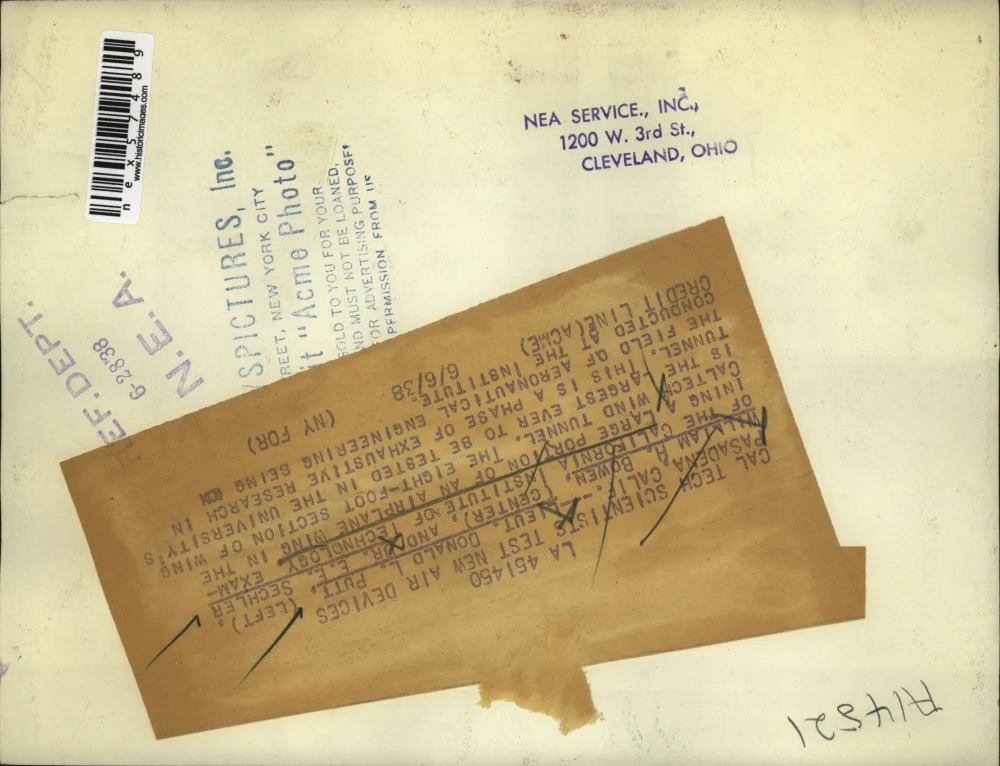 nex57489
www.historicimages.com
NEA SERVICE., INC.,
1200 W. 3rd St.,
CLEVELAND, OHIO
SPICTURES, Inc.
REET, NEW YORK CITY
it "Acme Photo"
SOLD TO YOU FOR YOUR
ND MUST NOT BE LOANED,
OR ADVERTISING PURPOSE
PERMISSION FROM US
EF. DEPT.
6-28-38
N. E. A.
LA 451450
CAL TECH SCIENTISTS TEST NEW AIR DEVICES
PASADENA, CALIF. -- LIEUT. DONALD L. PUTT, (LEFT),
WILLIAM H. BOWEN, (CENTER), AND DR. E.E. SECHLER
OF THE CALIFORNIA INSTITUTE OF TECHNOLOGY EXAM-
INING A LARGE PORTION OF AN AIRPLANE WING IN THE
CALTECH WIND TUNNEL. THE EIGHT-FOOT SECTION OF WING
IS THE LARGEST EVER TO BE TESTED IN THE UNIVERSITY'S
TUNNEL. THIS IS A PHASE OF EXHAUSTIVE RESEARCH IN
THE FIELD OF AERONAUTICAL ENGINEERING BEING
CONDUCTED AT THE INSTITUTE
CREDIT LINE (ACME) 6/6/38 (NY FOR)
A14821